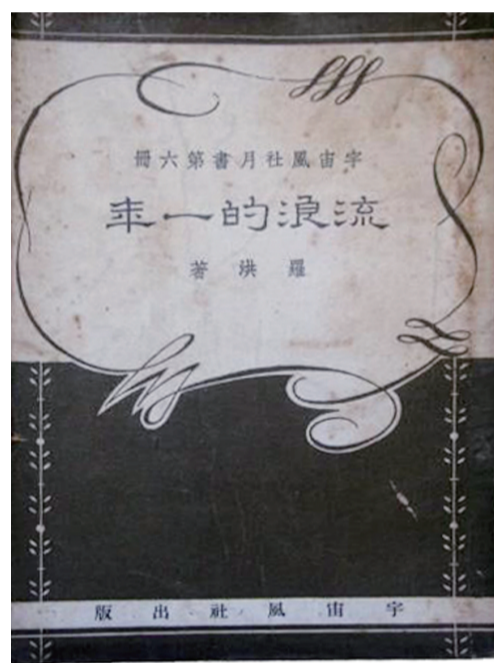 宇宙風社月書第六冊
流浪的一年
羅洪著
宇宙風社出版